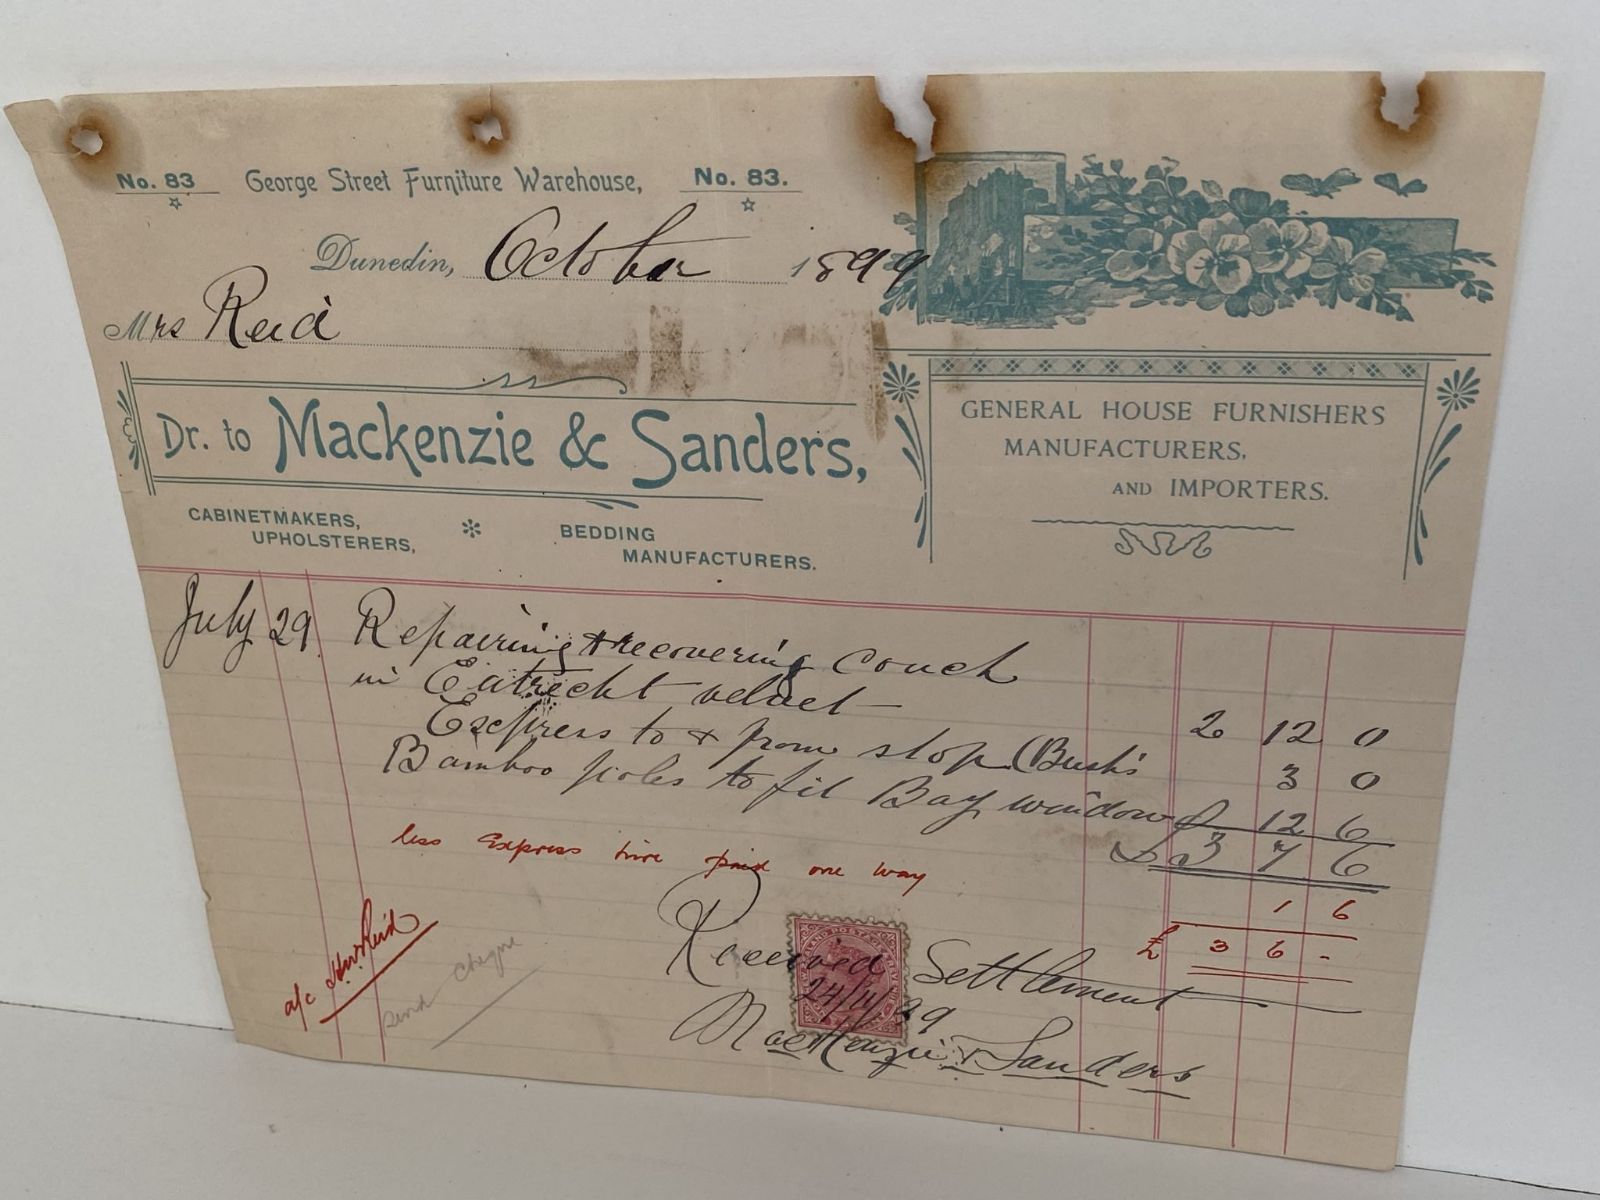 No. 83 George Street Furniture Warehouse, No. 83.
Dunedin, October 1899
Mrs Reid
Dr. to Mackenzie & Sanders,
CABINETMAKERS,
UPHOLSTERERS,
BEDDING
MANUFACTURERS.
GENERAL HOUSE FURNISHERS
MANUFACTURERS,
AND IMPORTERS.
July 29 Repairing & recovering couch
in Eutrecht velvet — 2 12 0
Express to & from shop (Bush's 3 0
Bamboo poles to fit Bay window 12 6
£ 3 7 6
less Express hire paid one way 1 6
£ 3 6 -
a/c HW Reid
send Cheque
Received Settlement
24/11/99
MacKenzie & Sanders